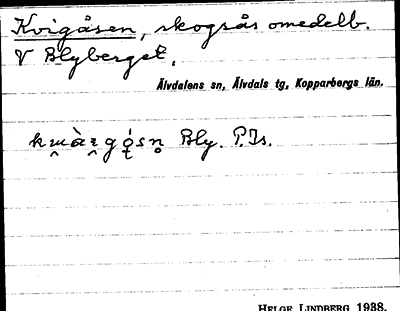 Kvigåsen, skogsås omedelb.
V Blyberget.
Älvdalens sn, Älvdals tg, Kopparbergs län.
Bly. P.Is.
HELGE LINDBERG 1938.